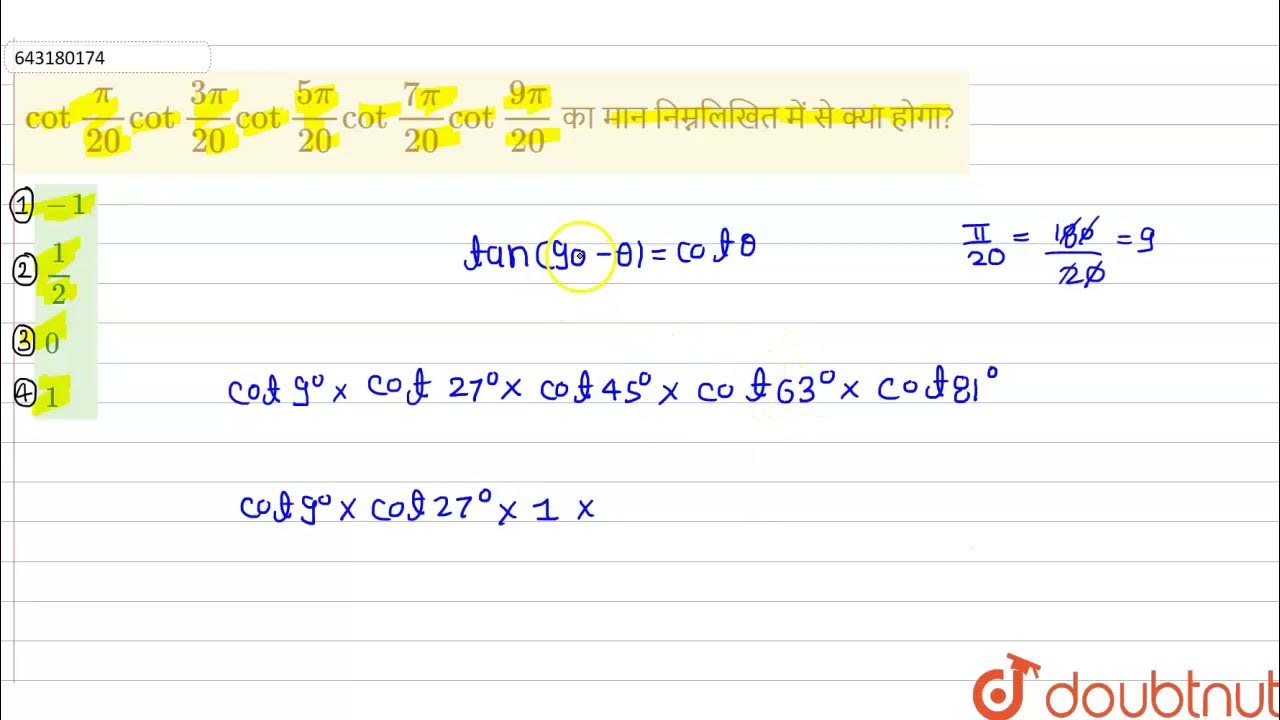 643180174
cot π/20 cot 3π/20 cot 5π/20 cot 7π/20 cot 9π/20 का मान निम्नलिखित में से क्या होगा?
① -1
② 1/2
③ 0
④ 1
tan(90-θ) = cotθ
π/20 = 180/20 = 9
cot 9° × cot 27° × cot 45° × cot 63° × cot 81°
cot 9° × cot 27° × 1 ×
doubtnut